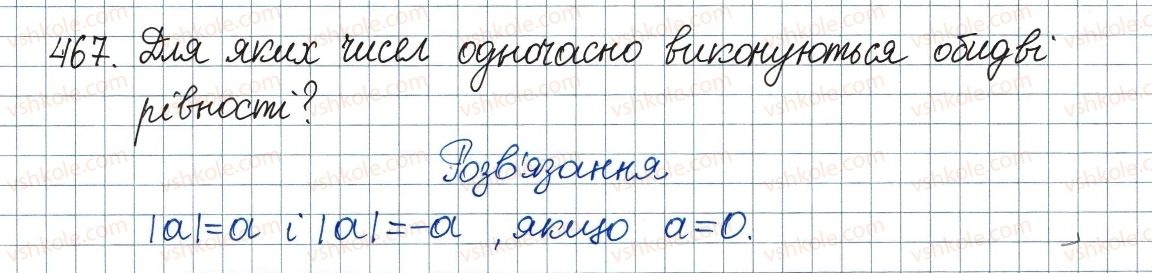 467. Для яких чисел одночасно виконуються обидві
рівності?
Розв'язання
|a|=a і |a|=-a , якщо a=0.